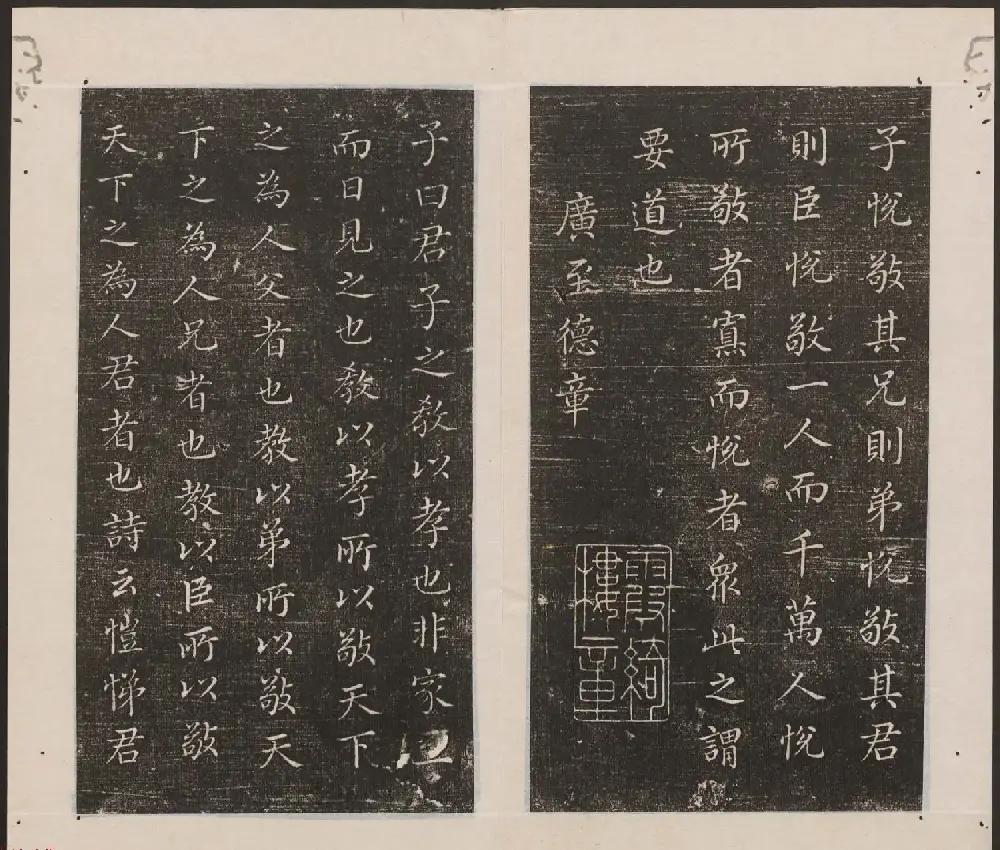 子悅敬其兄則弟悅敬其君
則臣悅敬一人而千萬人悅
所敬者寡而悅者眾此之謂
要道也
廣至德章
霞綺
樓章
子曰君子之教以孝也非家
而日見之也教以孝所以敬天下
之為人父者也教以弟所以敬天
下之為人兄者也教以臣所以敬
天下之為人君者也詩云愷悌君